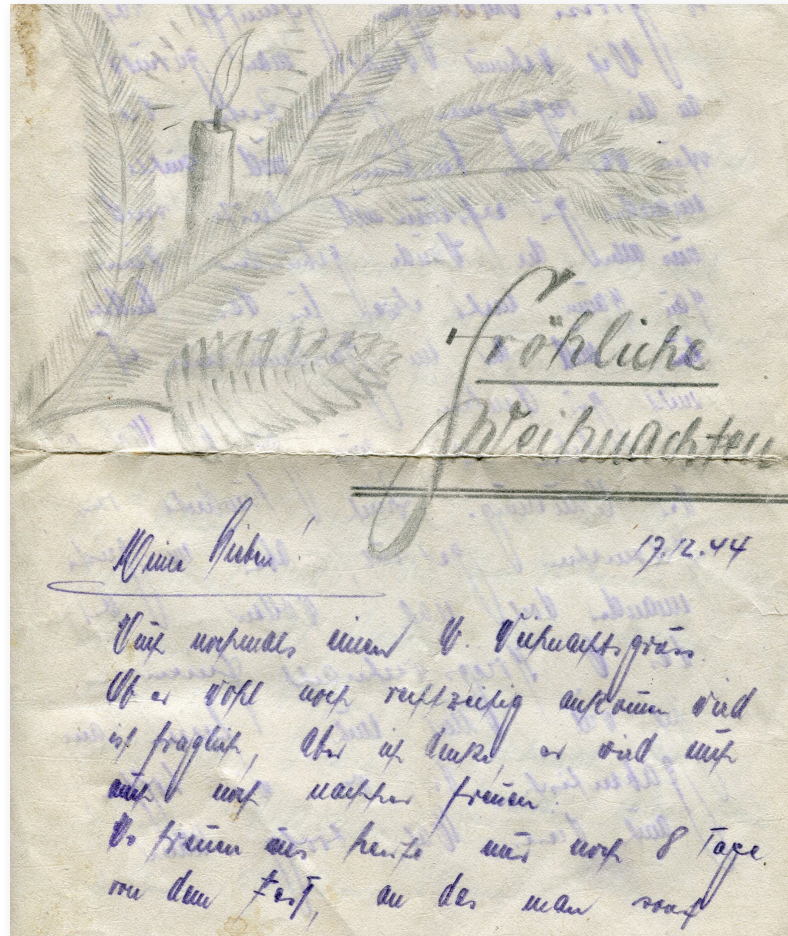 Fröhliche
Weihnachten
Meine Lieben! 17.12.44
Euch nochmals einen lb. Weihnachtsgruss.
Ob er wohl noch rechtzeitig ankommen wird
ist fraglich, aber ich denke, er wird euch
auch noch nachher freuen.
trennen uns heute nur noch 8 Tage
von dem Fest, an das man sonst